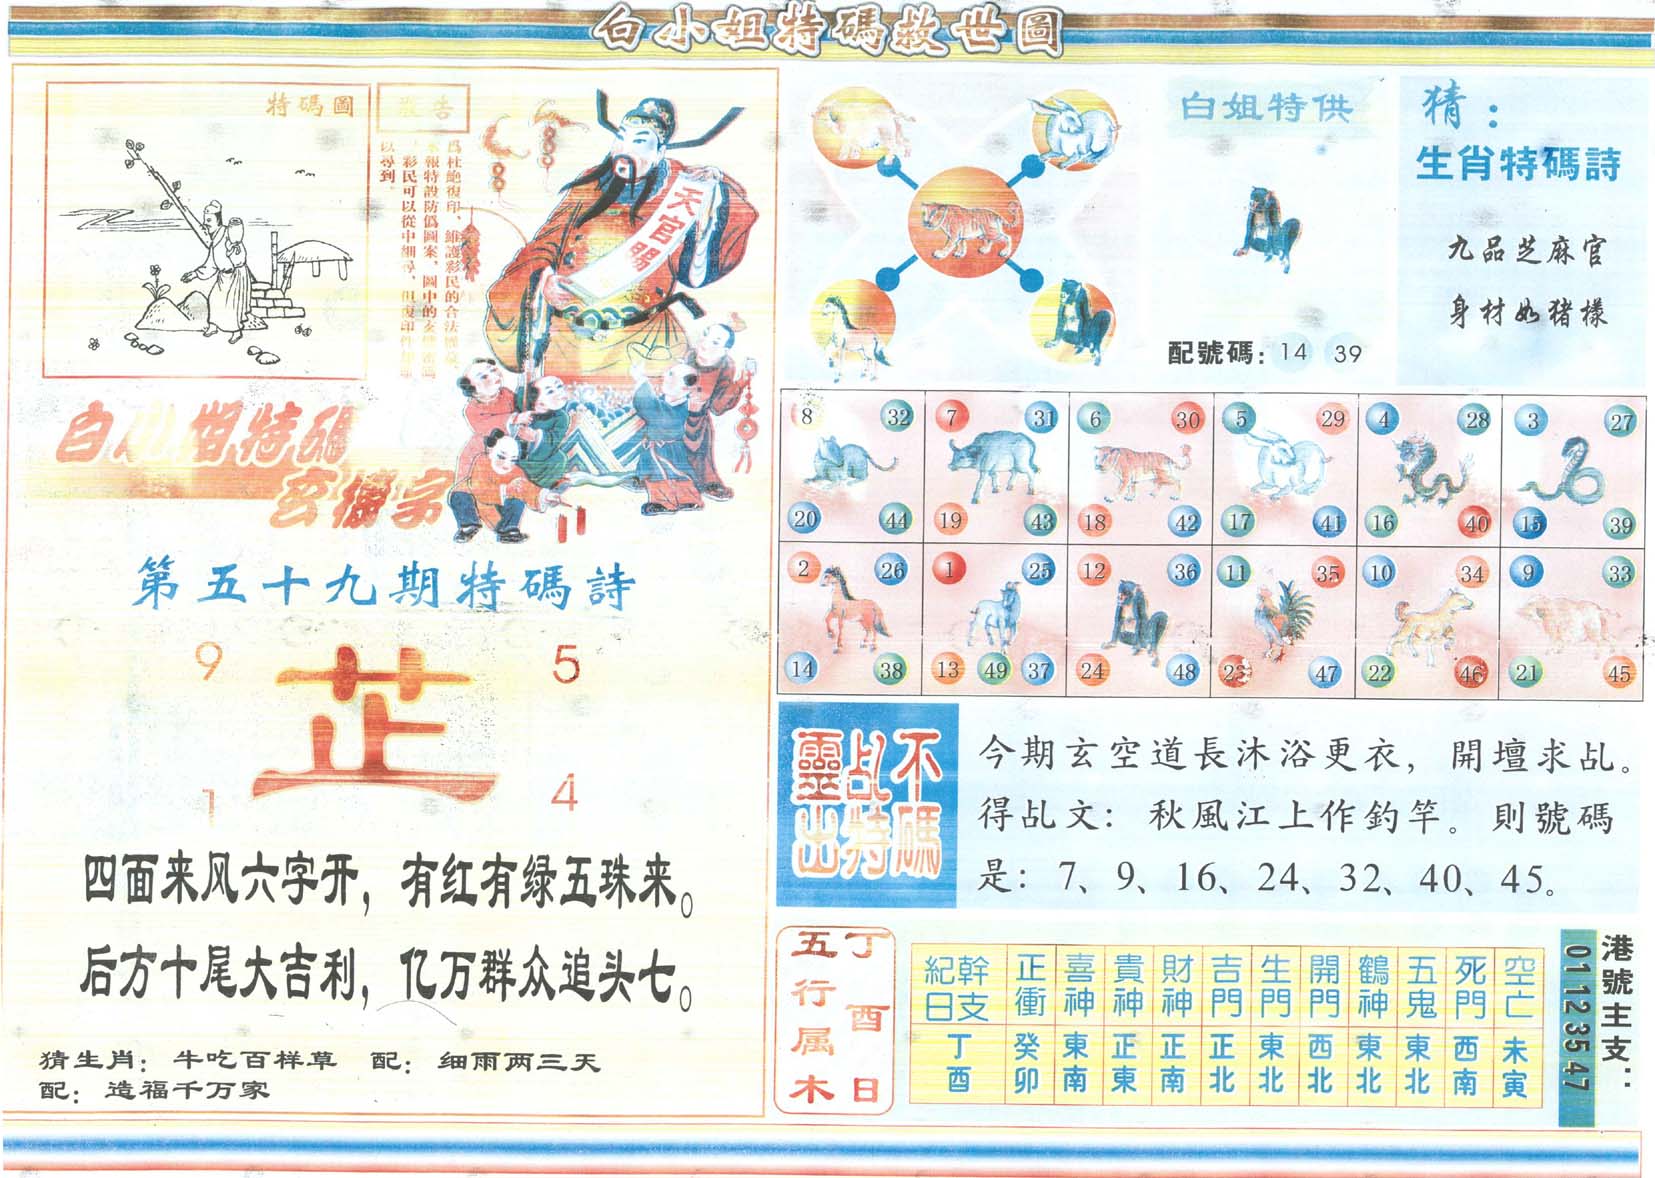 白小姐特碼救世圖
特碼圖
告
爲杜絶復印、維護彩民的合法
報特設防僞圖案,圖中的玄機
彩民可以從中細尋,但復印件
以尋到.
天官賜
白小姐特碼
玄機字
第五十九期特碼詩
9 5
芷
1 4
四面来风六字开，有红有绿五珠来。
后方十尾大吉利，亿万群众追头七。
猜生肖：牛吃百样草 配：细雨两三天
配：造福千万家
白姐特供
配號碼：14 39
猜：
生肖特碼詩
九品芝麻官
身材如猪樣
8 32 7 31 6 30 5 29 4 28 3 27
20 44 19 43 18 42 17 41 16 40 15 39
2 26 1 25 12 36 11 35 10 34 9 33
14 38 13 49 37 24 48 23 47 22 46 21 45
不碼
乩特
靈出
今期玄空道長沐浴更衣，開壇求乩。
得乩文：秋風江上作釣竿。則號碼
是：7、9、16、24、32、40、45。
丁酉日
五行属木
紀日幹支 正衝 喜神 貴神 財神 吉門 生門 開門 鶴神 五鬼 死門 空亡
丁酉 癸卯 東南 正東 正南 正北 東北 西北 東北 東北 西南 未寅
港號主支：
01123547